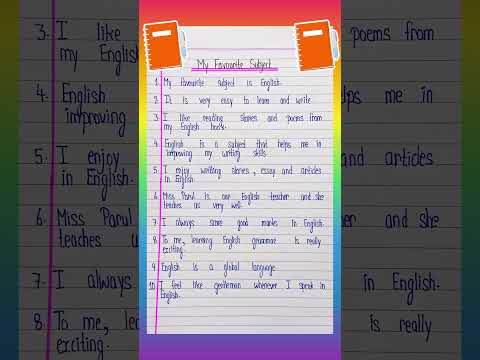 My Favourite Subject
1. My favourite subject is English.
2. It is very easy to learn and write
3. I like reading stories and poems from
my English book.
4. English is a subject that helps me in
improving my writing skills.
5. I enjoy writting stories, essay and articles
in English.
6. Miss Parul is our English teacher and she
teaches us very well.
7. I always score good marks in English.
8. To me, learning English grammar is really
exciting.
9. English is a global language
10. I feel like gentleman whenever I speak in
English.
3. I like
my English
4. English
improving
5. I enjoy
in English.
6. Miss Parul
teaches u
7. I always
8. To me, lea
exciting.
poems from
lps me in
and articles
er and she
in English.
is really